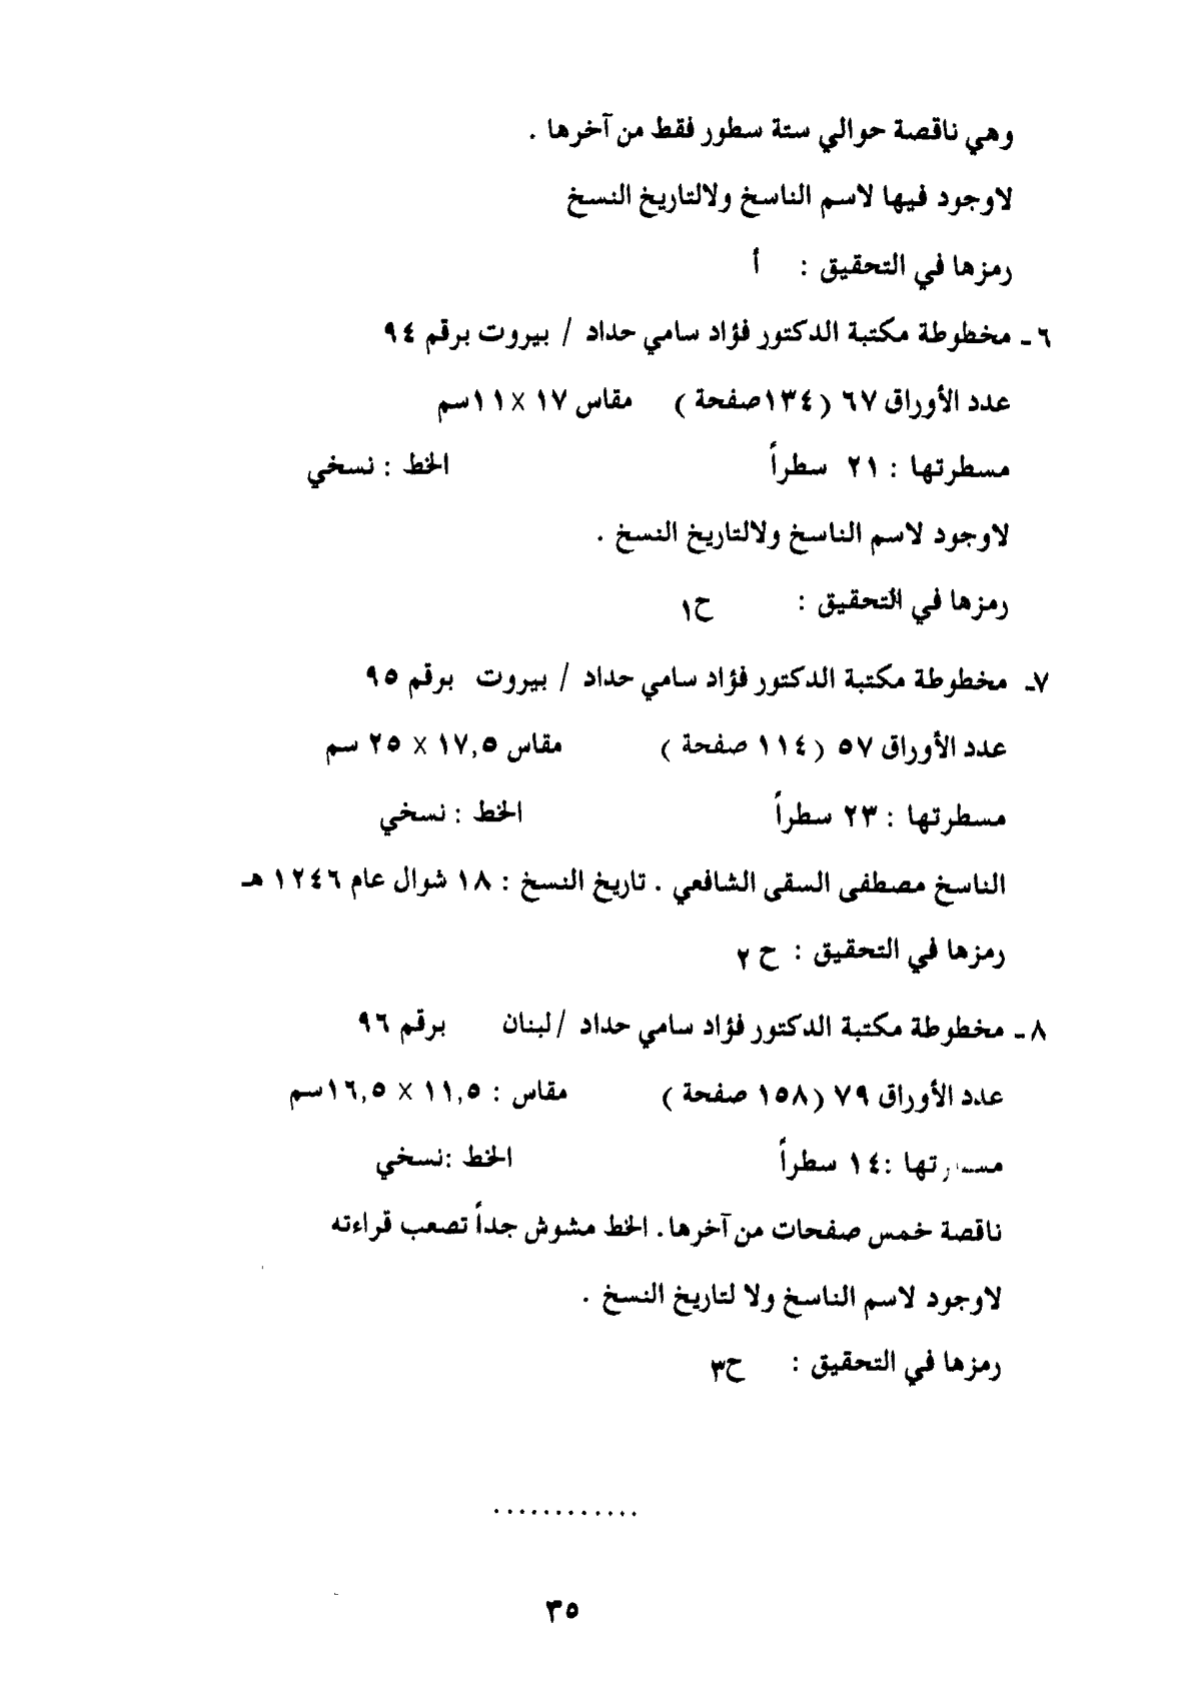 وهي ناقصة حوالي ستة سطور فقط من آخرها .
لاوجود فيها لاسم الناسخ ولالتاريخ النسخ
رمزها في التحقيق : أ
٦ ـ مخطوطة مكتبة الدكتور فؤاد سامي حداد / بيروت برقم ٩٤
عدد الأوراق ٦٧ (١٣٤صفحة ) مقاس ١٧ × ١١سم
مسطرتها : ٢١ سطراً الخط : نسخي
لاوجود لاسم الناسخ ولالتاريخ النسخ .
رمزها في التحقيق : ح١
٧ـ مخطوطة مكتبة الدكتور فؤاد سامي حداد / بيروت برقم ٩٥
عدد الأوراق ٥٧ (١١٤ صفحة ) مقاس ١٧,٥ × ٢٥ سم
مسطرتها : ٢٣ سطراً الخط : نسخي
الناسخ مصطفى السقى الشافعي . تاريخ النسخ : ١٨ شوال عام ١٢٤٦ هـ
رمزها في التحقيق : ح ٢
٨ ـ مخطوطة مكتبة الدكتور فؤاد سامي حداد /لبنان برقم ٩٦
عدد الأوراق ٧٩ (١٥٨ صفحة ) مقاس : ١١,٥ × ١٦,٥سم
مسطرتها :١٤ سطراً الخط :نسخي
ناقصة خمس صفحات من آخرها. الخط مشوش جداً تصعب قراءته
لاوجود لاسم الناسخ ولا لتاريخ النسخ .
رمزها في التحقيق : ح٣
............
٣٥